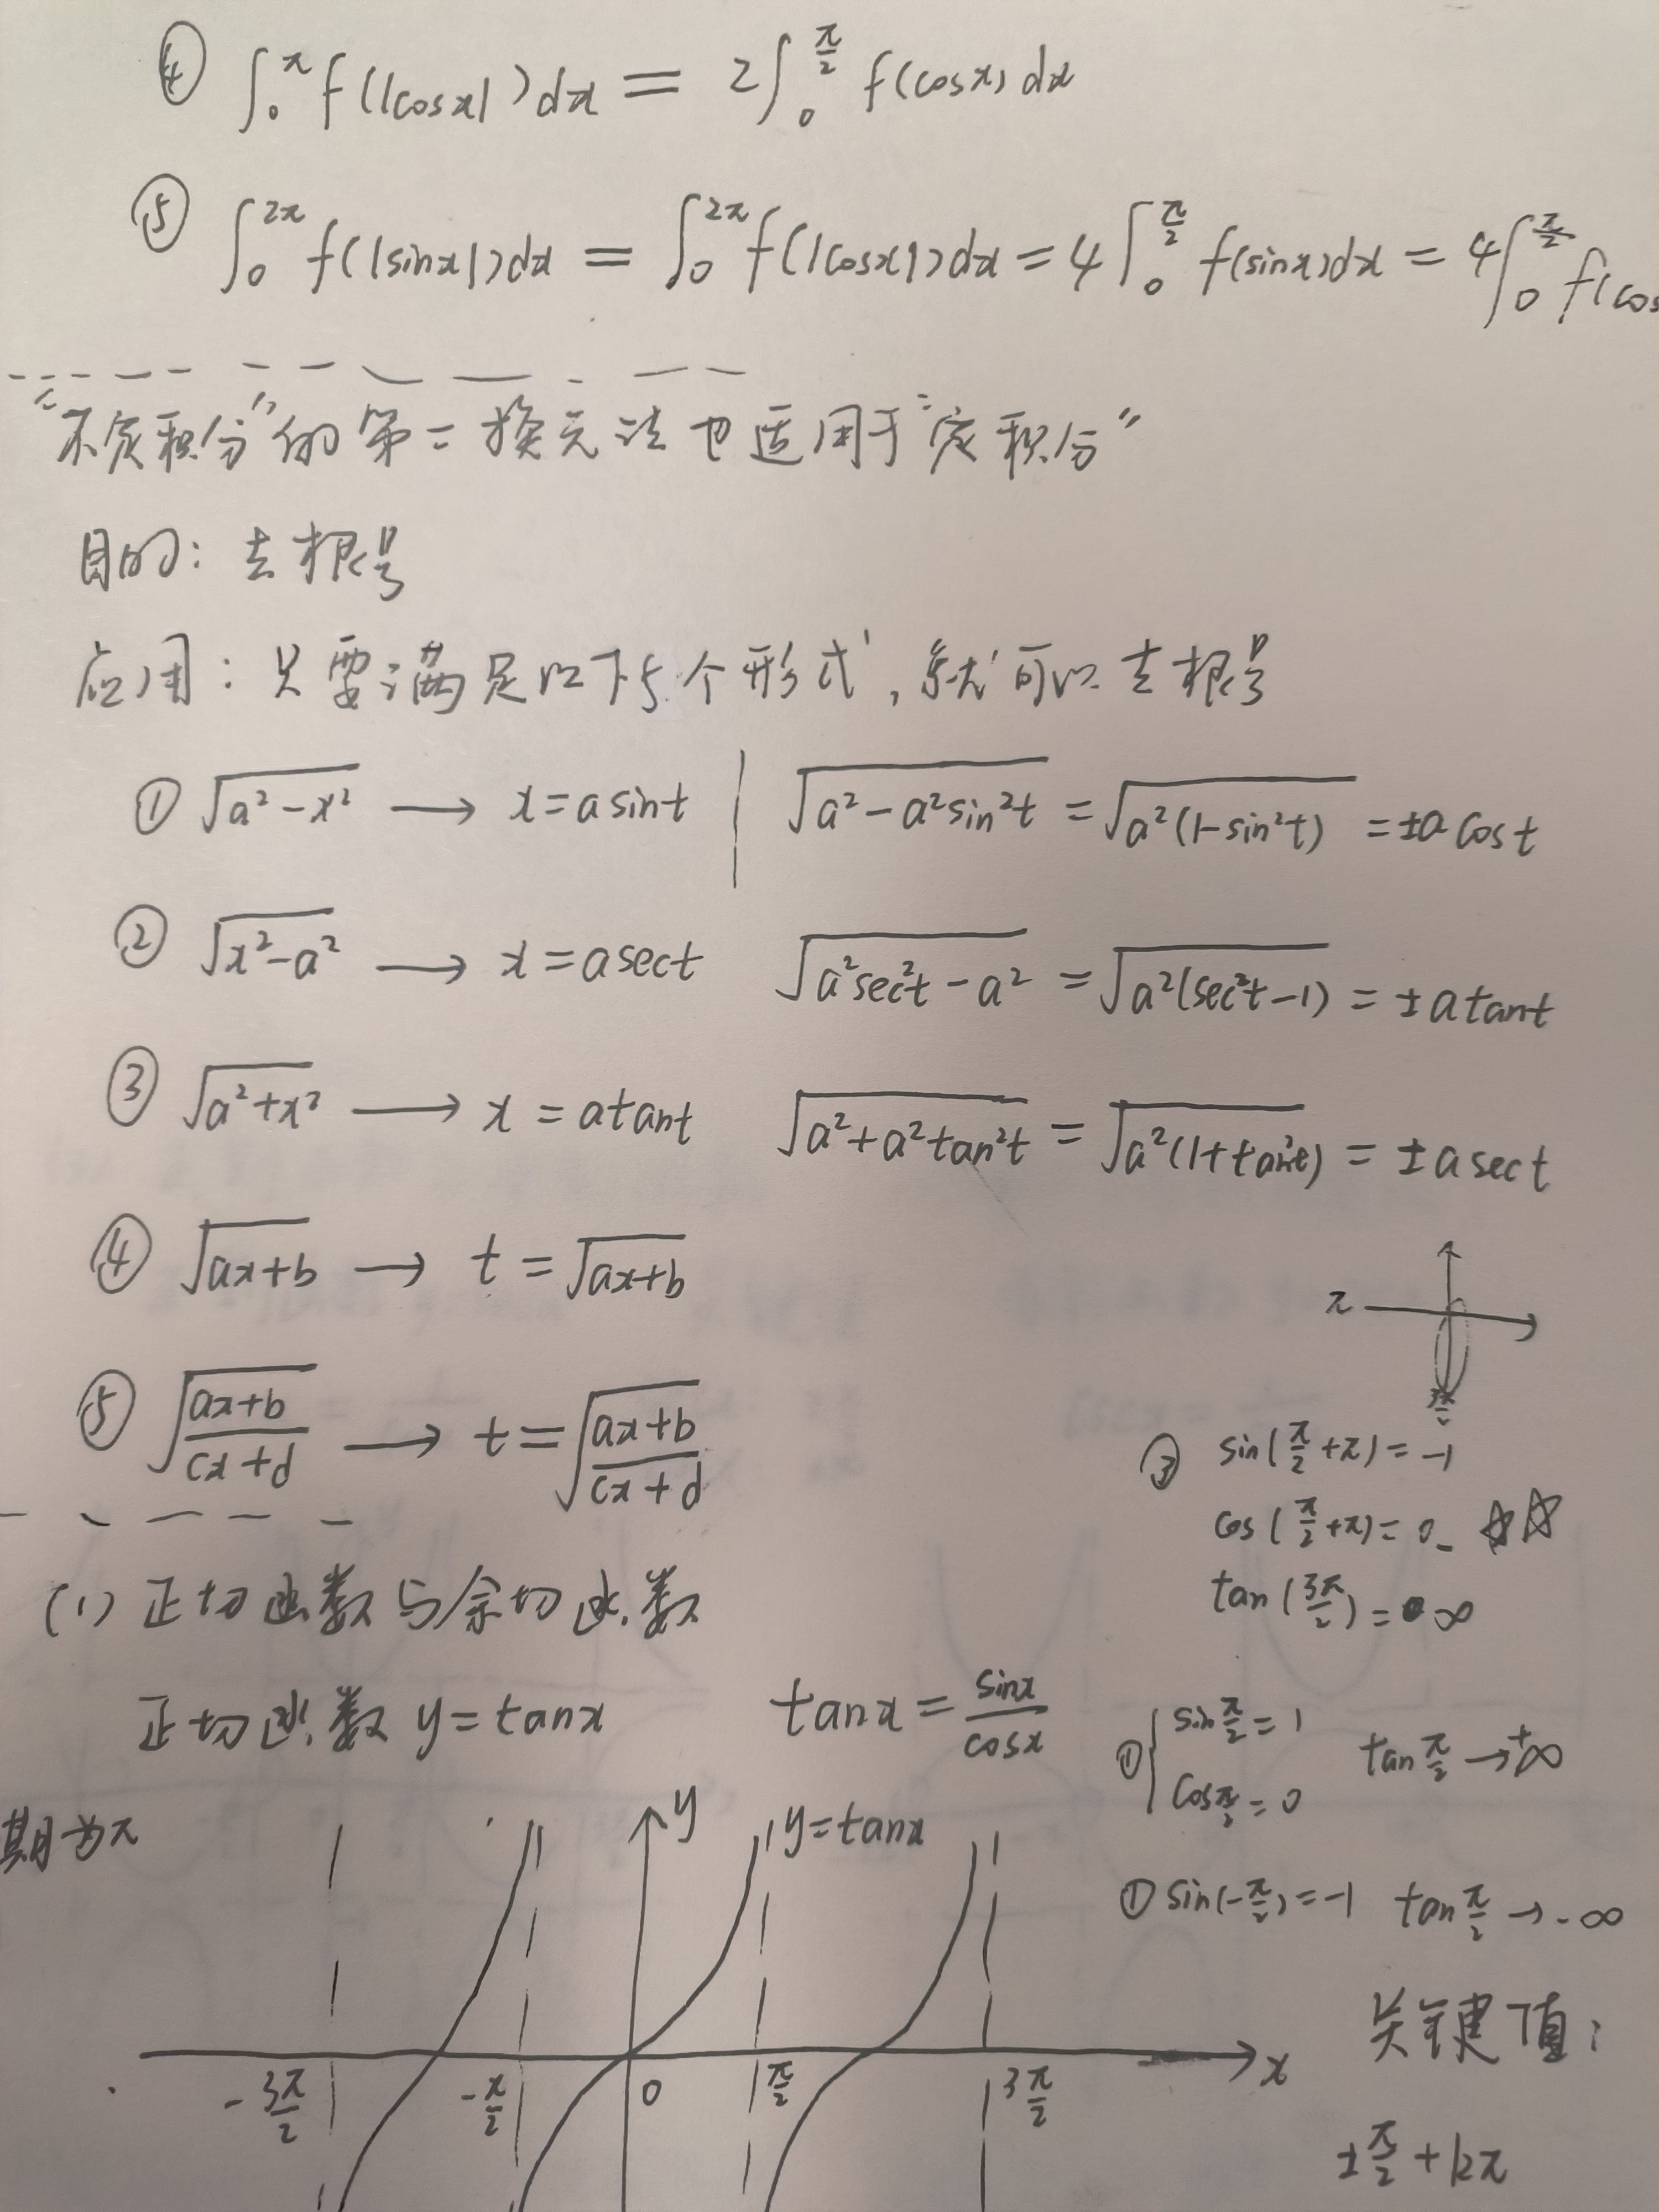 ④ ∫₀^π f(|cosx|)dx = 2∫₀^{π/2} f(cosx)dx
⑤ ∫₀^{2π} f(|sinx|)dx = ∫₀^{2π} f(|cosx|)dx = 4∫₀^{π/2} f(sinx)dx = 4∫₀^{π/2} f(cos
"不定积分"的第二换元法也适用于"定积分"
目的：去根号
应用：只要满足以下5个形式，就可以去根号
① √(a²-x²) → x=asint | √(a²-a²sin²t) = √(a²(1-sin²t)) = ±a cost
② √(x²-a²) → x=asect √(a²sec²t-a²) = √(a²(sec²t-1)) = ±atant
③ √(a²+x²) → x=atant √(a²+a²tan²t) = √(a²(1+tan²t)) = ±asect
④ √(ax+b) → t=√(ax+b)
π
3π/2
⑤ √((ax+b)/(cx+d)) → t=√((ax+b)/(cx+d))
③ sin(π/2+π)=-1
cos(π/2+π)=0₋ ☆☆
tan(3π/2)=∞
(1) 正切函数与余切函数
正切函数 y=tanx tanx = sinx/cosx
① { sin π/2 = 1
cos π/2 = 0
tan π/2 → +∞
期为π
y
y=tanx
① sin(-π/2)=-1 tan π/2 → -∞
关键值：
-3π/2 -π/2 0 π/2 3π/2 x
±π/2+kπ